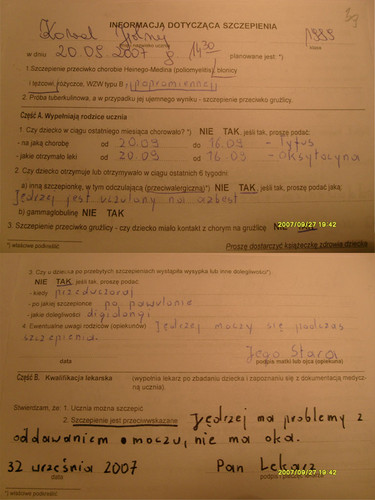 INFORMACJA DOTYCZĄCA SZCZEPIENIA
1999
klasa
w dniu 20.09 2007 g 14 30 planowane jest: *)
1. Szczepienie przeciwko chorobie Heinego-Medina (poliomyelitis), błonicy
i tężcowi, różyczce, WZW typu B, popromiennej
2. Próba tuberkulinowa, a w przypadku jej ujemnego wyniku - szczepienie przeciwko gruźlicy.
Część A. Wypełniają rodzice ucznia
1. Czy dziecko w ciągu ostatniego miesiąca chorowało? *) NIE TAK, jeśli tak, proszę podać:
- na jaką chorobę od 20.09 do 16.09 - tyfus
- jakie otrzymało leki od 20.09 do 16 09 - Oksytocyna
2. Czy dziecko otrzymuje lub otrzymywało w ciągu ostatnich 6 tygodni
a) inną szczepionkę, w tym odczulającą (przeciwalergiczną)*) NIE TAK, jeśli tak, proszę podać jaką:
Jędrzej jest uczulony na azbest
b) gammaglobulinę NIE TAK
3. Szczepienie przeciwko gruźlicy - czy dziecko miało kontakt z chorym na gruźlicę NIE
2007/09/27 19:42
*) właściwe podkreślić
Proszę dostarczyć książeczkę zdrowia dziecka
3. Czy u dziecka po przebytych szczepieniach wystąpiła wysypka lub inne dolegliwości*).
NIE TAK, jeśli tak, proszę podać
- kiedy przedwczoraj
- po jakiej szczepionce na pawulon
- jakie dolegliwości
4. Ewentualne uwagi rodziców (opiekunów) Jędrzej moczy się podczas
szczepienia.
Jego Stara
data podpis matki lub ojca (opiekuna)
Część B. Kwalifikacja lekarska (wypełnia lekarz po zbadaniu dziecka i zapoznaniu się z dokumentacją medycz-
ną ucznia).
Stwierdzam, że: 1. Ucznia można szczepić
2. Szczepienie jest przeciwwskazane Jędrzej ma problemy z
oddawaniem moczu, nie ma oka.
32 września 2007 Pan Lekarz
data podpis i pieczęć lekarza
2007/09/27 19:42
*) właściwe podkreślić